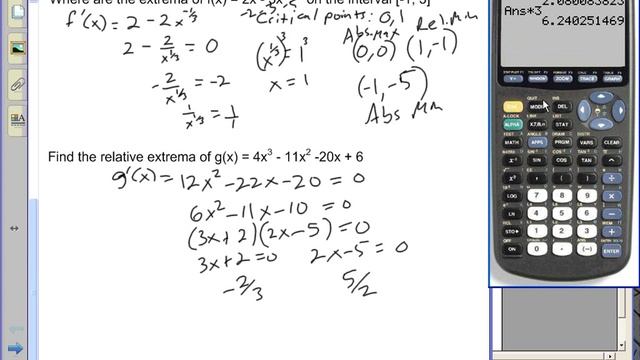 Where are the extrema of f(x) = 2x - 3x on the interval [-1, 3]
f'(x) = 2 - 2x^-1/3
Critical points: 0, 1
2 - 2/x^1/3 = 0
(x^1/3)^3 = 1^3
Abs. Max
(0,0)
Rel. Min
(1,-1)
-2/x^1/3 = -2
x = 1
(-1,-5)
1/x^1/3 = 1/1
Abs Min
Find the relative extrema of g(x) = 4x³ - 11x² -20x + 6
g'(x) = 12x² - 22x - 20 = 0
6x² - 11x - 10 = 0
(3x + 2)(2x - 5) = 0
3x + 2 = 0 2x - 5 = 0
-2/3 5/2
2.080083823
Ans*3
6.240251469
QUIT
MODE DEL
ALPHA X,T,θ,n STAT
MATH APPS PRGM VARS CLEAR
LOG 7 8 9
LN 4 5 6
STO▸ 1 2 3
ON 0 ENTER